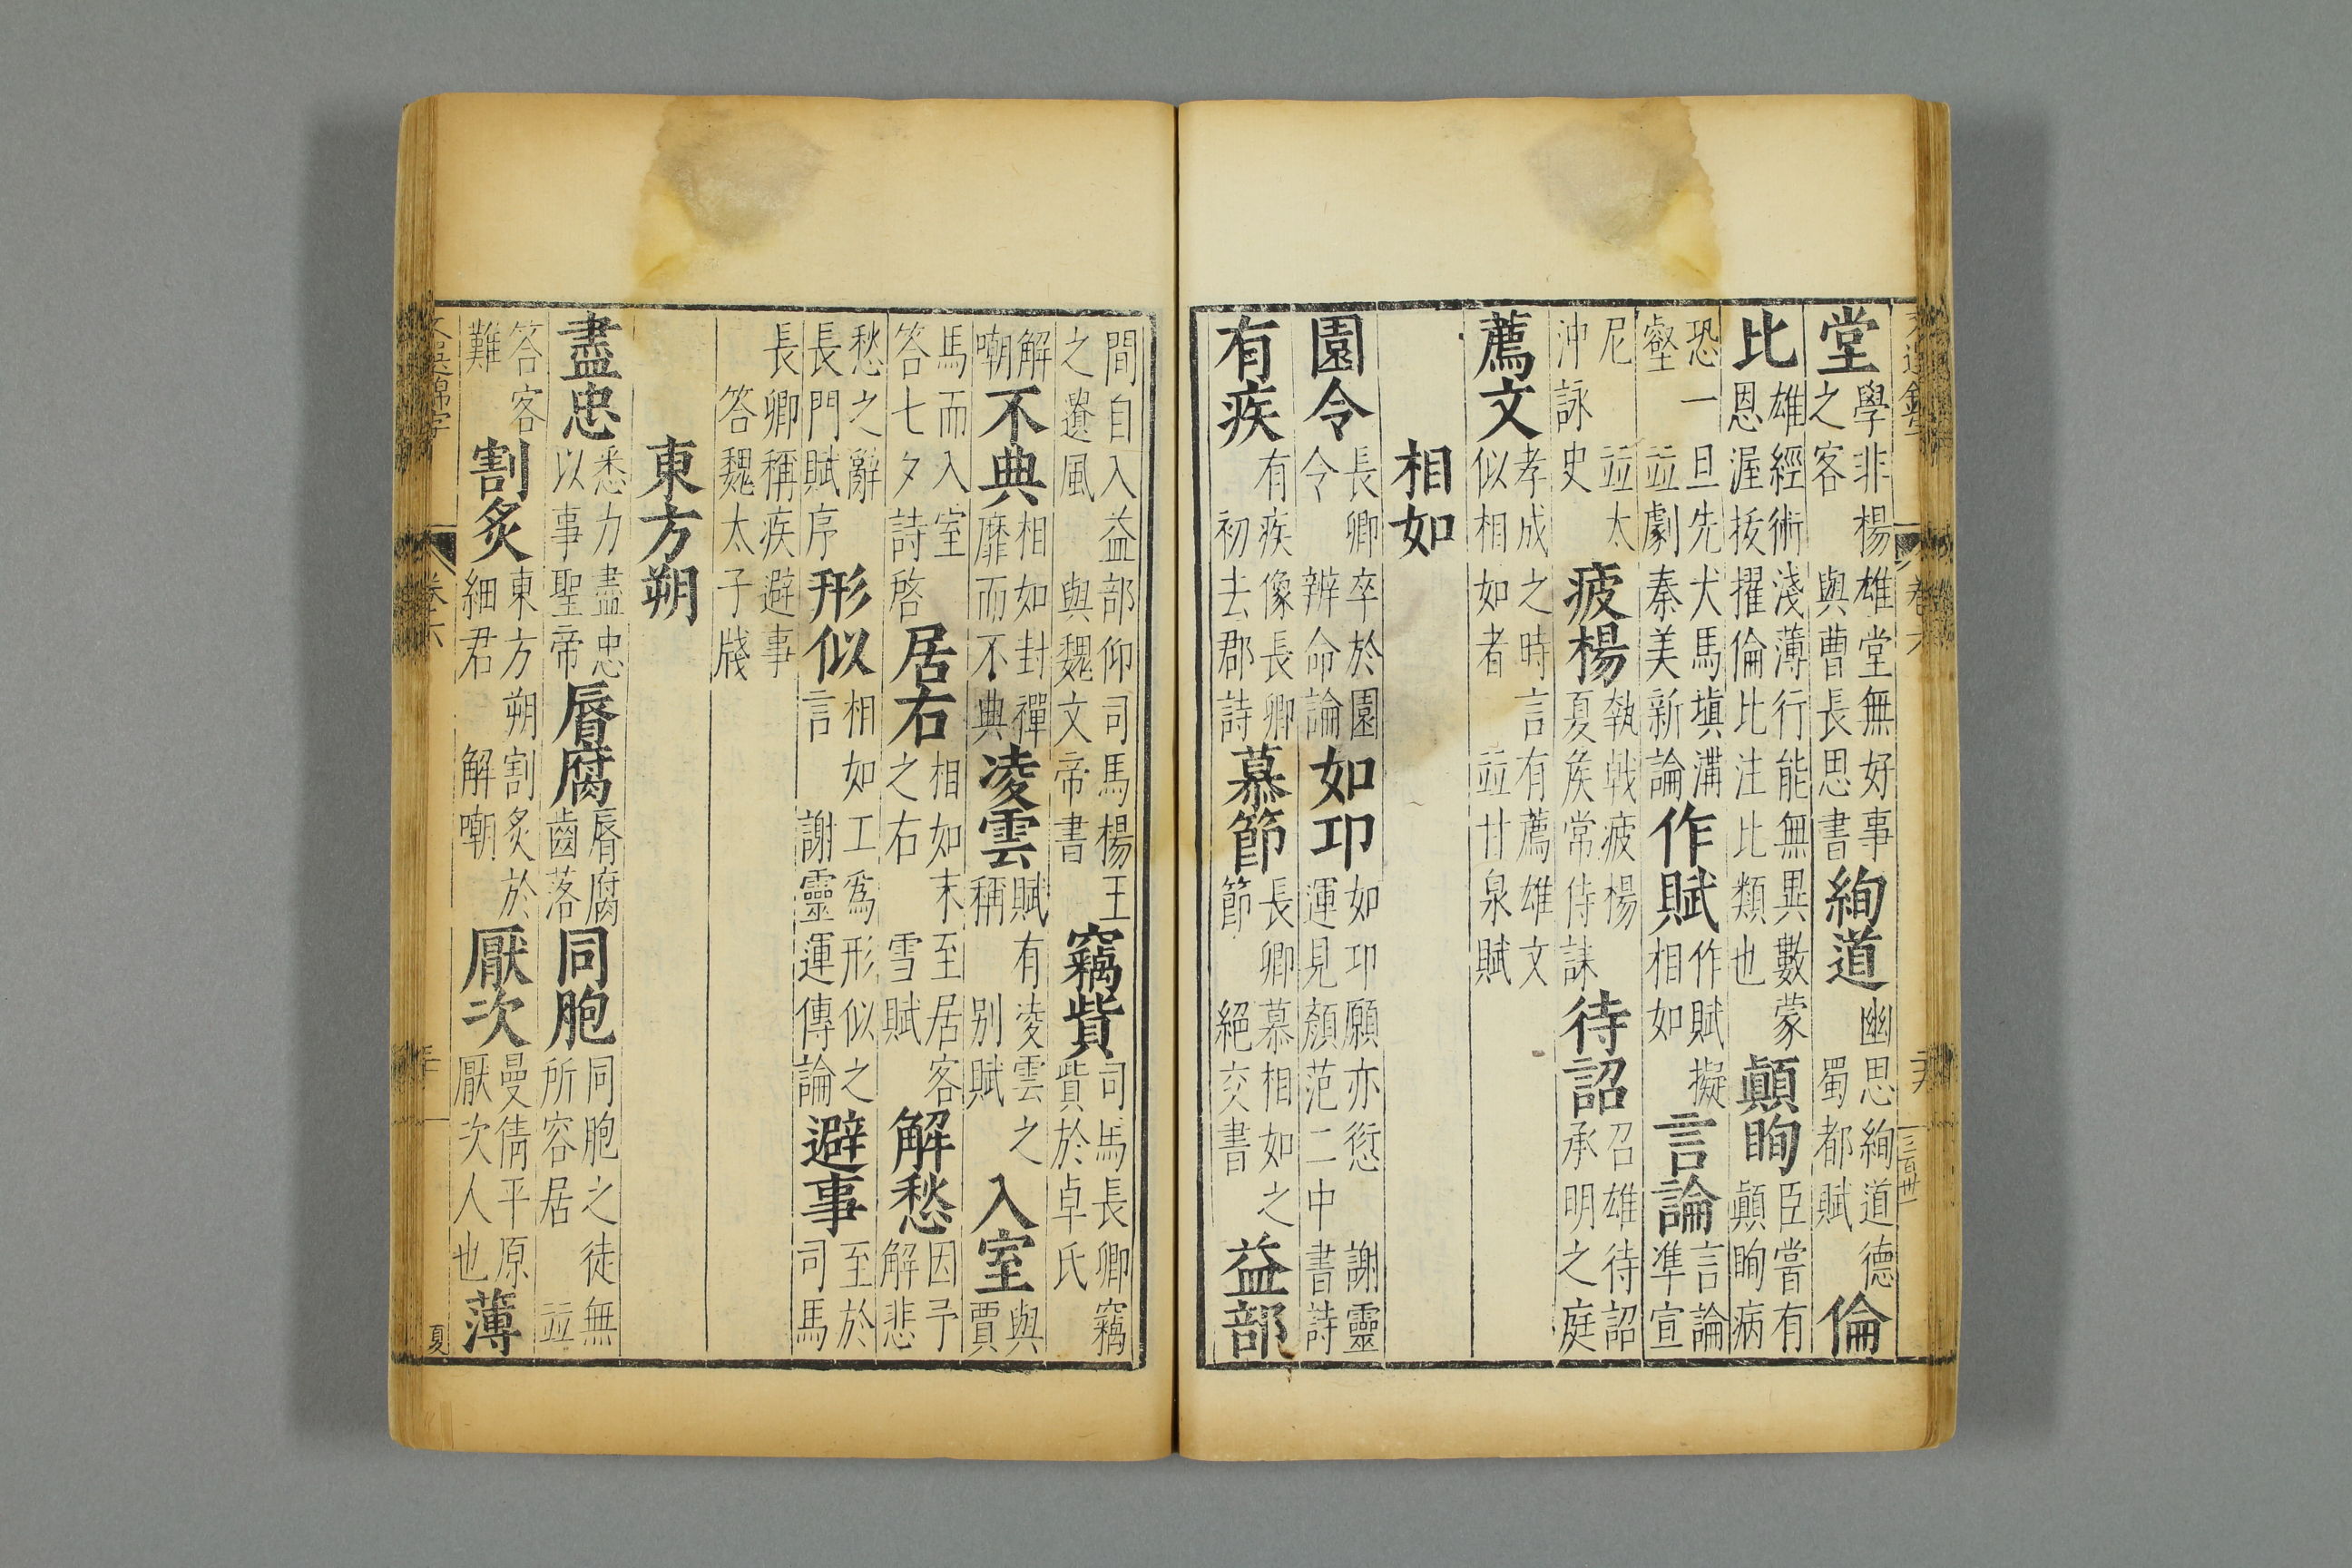 文選錦字 卷六 三百卅一
堂學非楊雄堂無好事之客 與曹長思書絢道幽思絢道德 蜀都賦倫
比雄經術淺薄行能無異數蒙恩渥拔擢倫比注比類也顛眴臣嘗有顛眴病
恐一旦先犬馬填溝壑 並劇秦美新論作賦作賦擬相如言論言論準宣
尼 並太沖詠史疲楊執戟疲楊夏侯常侍誄待詔召雄待詔承明之庭
薦文孝成之時言有薦雄文似相如者 並甘泉賦
相如
園令長卿卒於園令 辨命論如卭如卭願亦愆 謝靈運見顏范二中書詩
有疾有疾像長卿 初去郡詩慕節長卿慕相如之節 絕交書益部
間自入益部仰司馬楊王之遺風 與魏文帝書竊貲司馬長卿竊貲於卓氏
解嘲不典相如封禪靡而不典凌雲賦有凌雲之稱 別賦入室與賈
馬而入室答七夕詩啓居右相如末至居客之右 雪賦解愁因予解悲
愁之辭長門賦序形似相如工爲形似之言 謝靈運傳論避事至於司馬
長卿稱疾避事 答魏太子牋
東方朔
盡忠悉力盡忠以事聖帝脣腐脣腐齒落同胞同胞之徒無所容居 並
答客難割炙東方朔割炙於細君 解嘲厭次曼倩平原厭次人也薄
卷六 夏